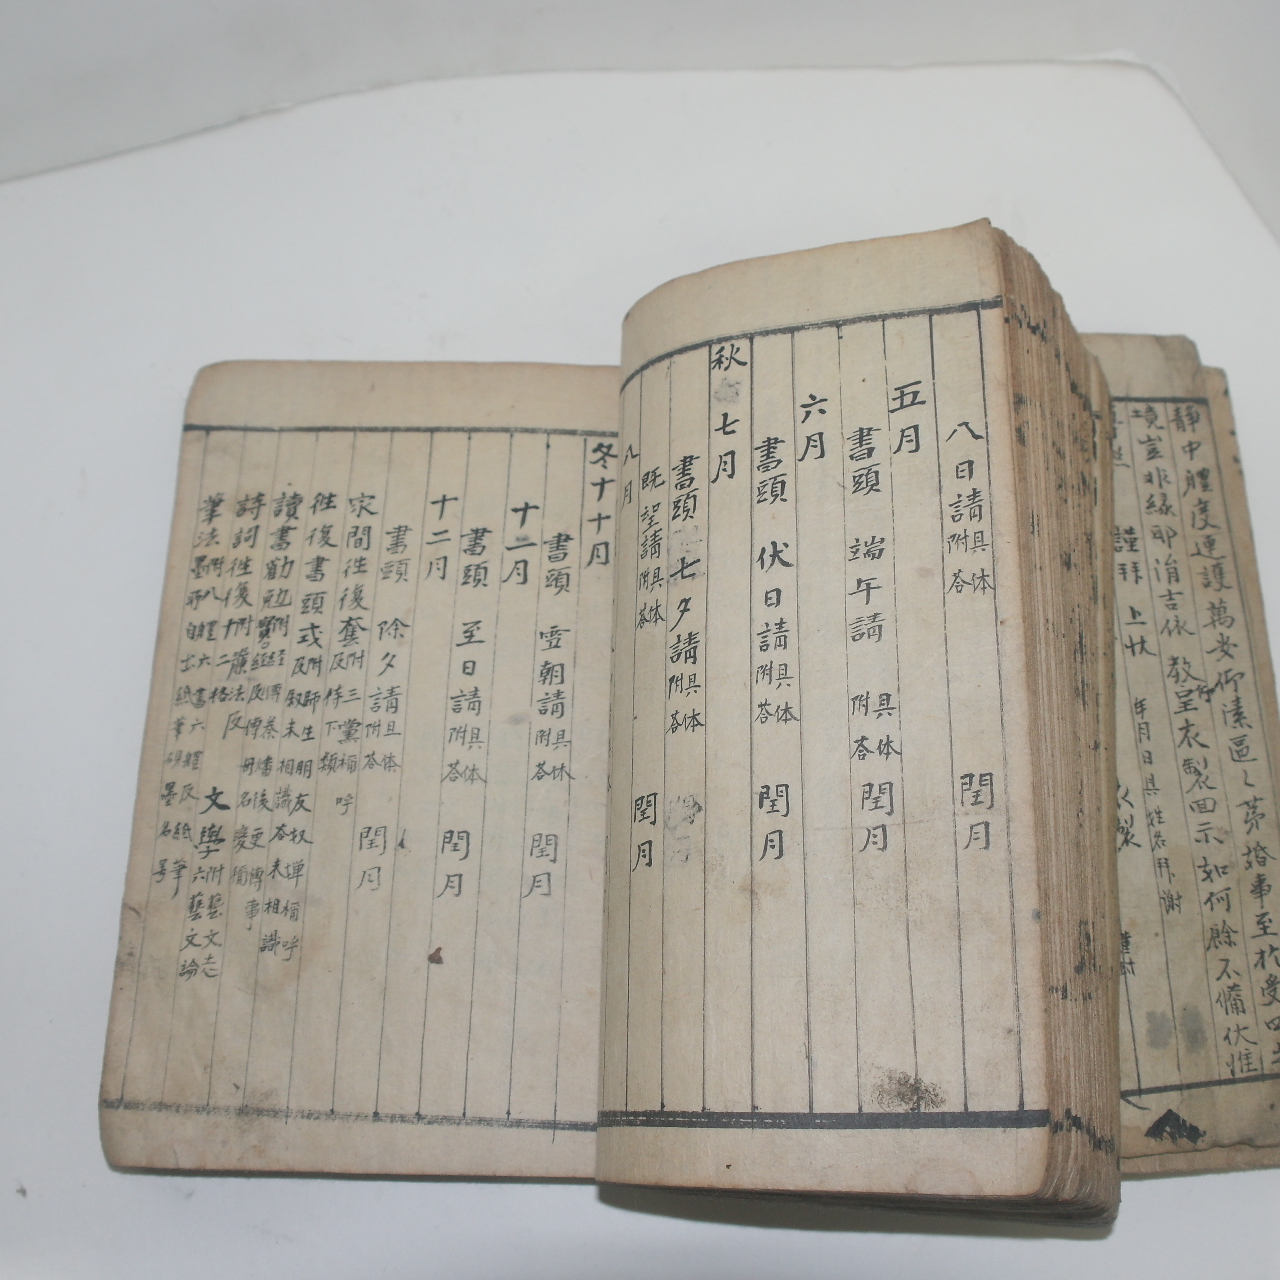 靜中體度連護萬安仰溸區〻第婚事至於受四步
境豈非緣耶涓吉依 教呈衣製回示如何餘不備伏惟
謹拜 上狀
年月日具 姓名拜謝
八日請附具体答 閏月
五月
書頭 端午請 附具体答 閏月
六月
書頭 伏日請附具体答 閏月
秋 七月
書頭 七夕請附具体答
八月 既望請附具体答 閏月
冬十十月
書頭 雪朝請附具体答 閏月
十二月
書頭 至日請附具体答 閏月
十二月
書頭 除夕請附具体答 閏月
家間徃復套附三黨稱呼及侍下類
徃復書頭或附師生朋友奴婢稱呼及叙未相識答未相識
讀書勸
詩詞徃復附簾法及十二格 文學附藝文志六藝文論
筆法附八體六書六體及紙筆墨